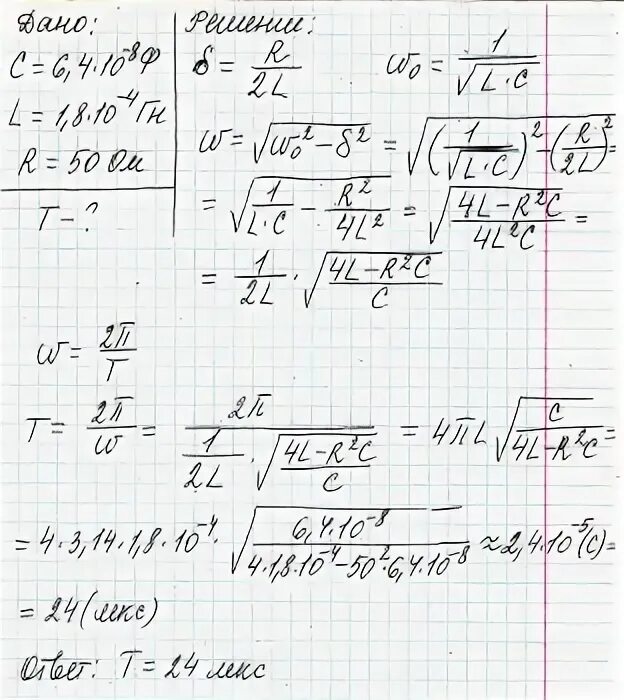 Дано:
C = 6,4·10⁻⁸ Ф
L = 1,8·10⁻⁴ Гн
R = 50 Ом
T - ?
Решение:
δ = R/2L   ω₀ = 1/√(L·C)
ω = √(ω₀² - δ²) = √((1/√(L·C))² - (R/2L)²) =
= √(1/(L·C) - R²/4L²) = √((4L - R²C)/4L²C) =
= 1/2L · √((4L - R²C)/C)
ω = 2π/T
T = 2π/ω = 2π/(1/2L · √((4L - R²C)/C)) = 4πL √(C/(4L - R²C)) =
= 4·3,14·1,8·10⁻⁴· √(6,4·10⁻⁸/(4·1,8·10⁻⁴ - 50²·6,4·10⁻⁸)) ≈ 2,4·10⁻⁵(с) =
= 24 (мкс)
Ответ: T = 24 мкс